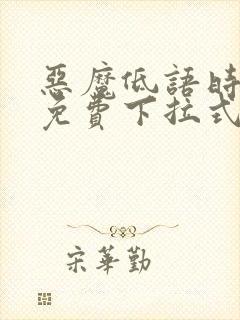 惡魔低語時
免費下拉式
宋華勤